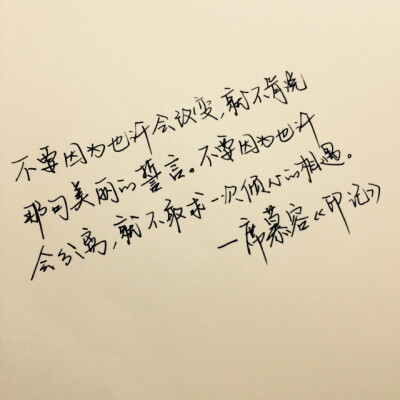 不要因为也许会改变,就不肯说
那句美丽的誓言。不要因为也许
会分离,就不敢求一次倾心的相遇。
—席慕容《印记》